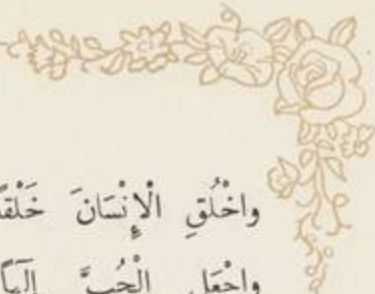 واخْلُقِ الْإِنْسَانَ خَلْقًا
واجْعَلِ الْحُبَّ إِلَهًا